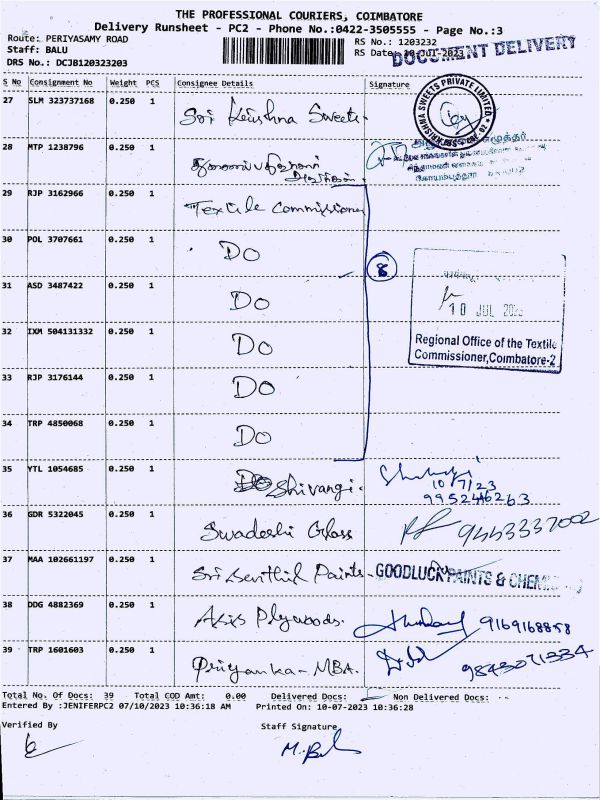 THE PROFESSIONAL COURIERS, COIMBATORE
Delivery Runsheet - PC2 - Phone No.:0422-3505555 - Page No.:3
Route: PERIYASAMY ROAD
RS No.: 1203232
Staff: BALU
RS Date: 10-Jul-2023
DOCUMENT DELIVERY
DRS No.: DCJB120323203
S No Consignment No Weight PCS Consignee Details Signature
27 SLM 323737168 0.250 1 Sri Krishna Sweets.
KRISHNA SWEETS PRIVATE LIMITED
28 MTP 1238796 0.250 1
29 RJP 3162966 0.250 1 Textile Commissioner
30 POL 3707661 0.250 1 Do
8
31 ASD 3487422 0.250 1 Do
10 JUL 2023
32 IXM 504131332 0.250 1 Do
Regional Office of the Textile
Commissioner,Coimbatore-2
33 RJP 3176144 0.250 1 Do
34 TRP 4850068 0.250 1 Do
35 YTL 1054685 0.250 1 Shivangi.
10/7/23
9952446263
36 GDR 5322045 0.250 1 Swadeshi Glass 9443337002
37 MAA 102661197 0.250 1 Sri Senthil Paints - GOODLUCK PAINTS & CHEM
38 DDG 4882369 0.250 1 Axis Plywoods. 9169168858
39 TRP 1601603 0.250 1 Priyanka - MBA. 9843071334
Total No. Of Docs: 39 Total COD Amt: 0.00 Delivered Docs: Non Delivered Docs: --
Entered By :JENIFERPC2 07/10/2023 10:36:18 AM Printed On: 10-07-2023 10:36:28
Verified By Staff Signature